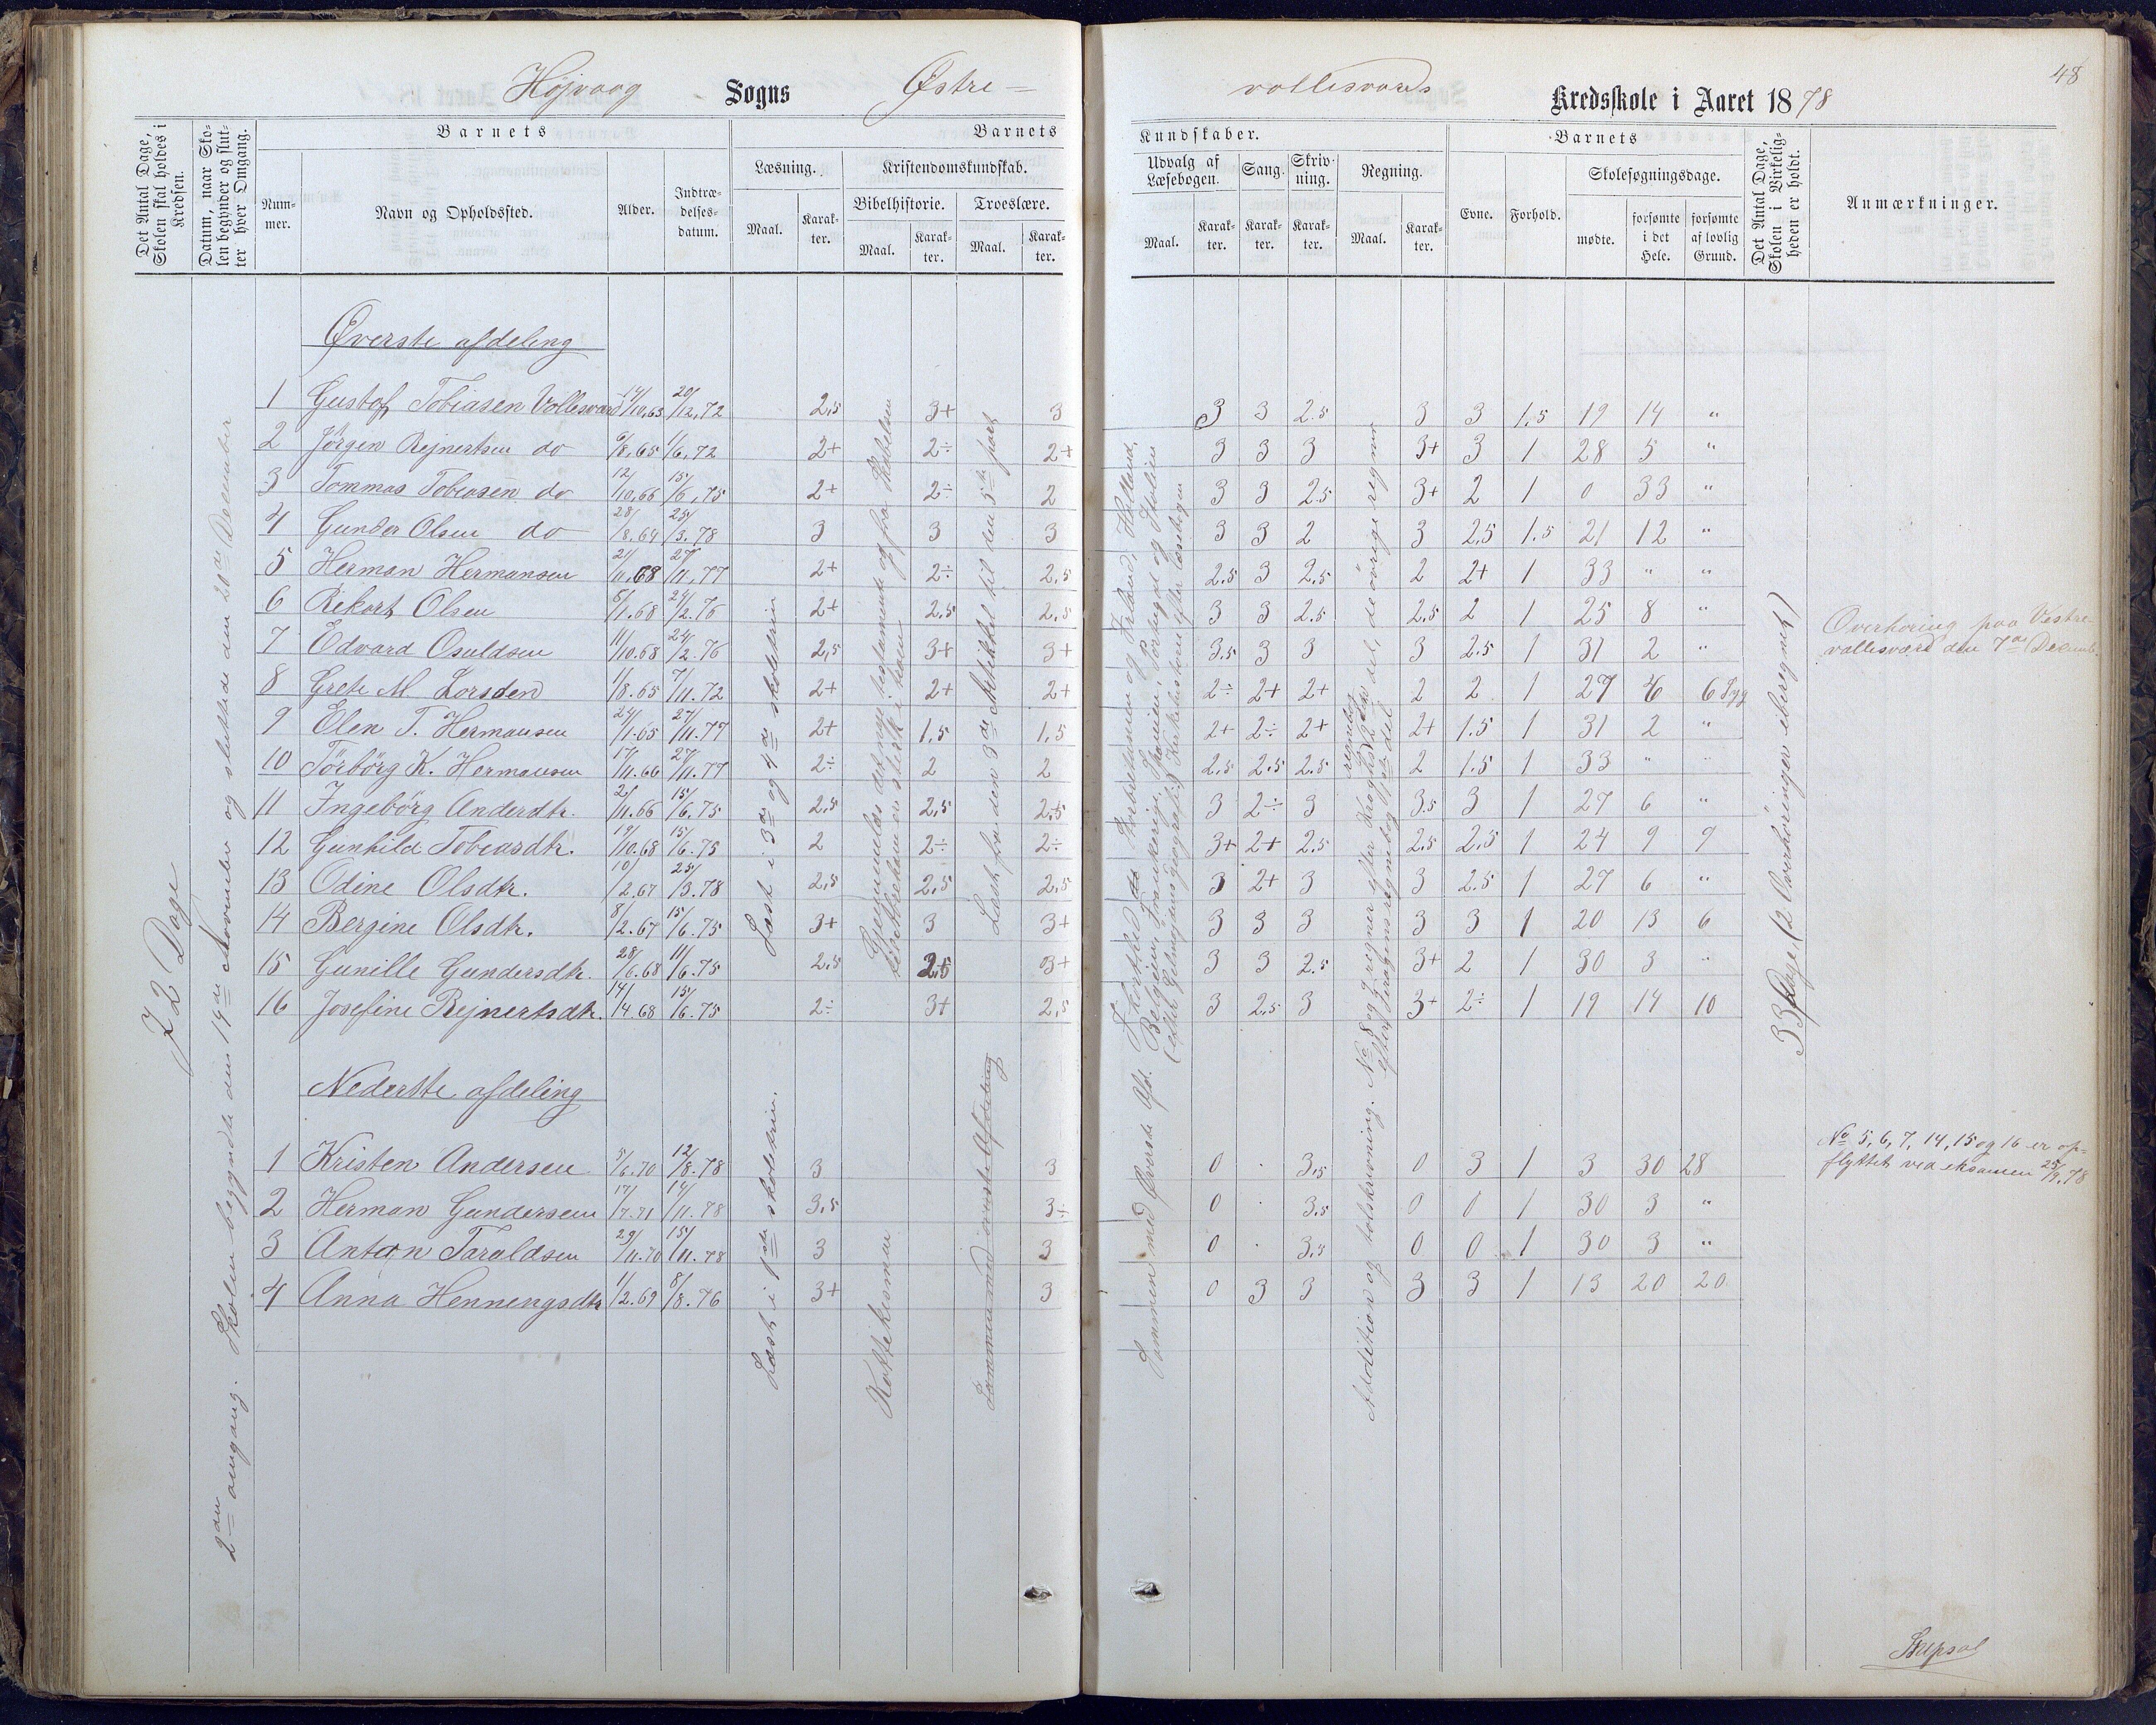 48
Højvaag Sogns Østre= vollesværds Kredsskole i Aaret 1878
Det Antal Dage, Skolen skal holdes i Kredsen.
Datum, naar Skolen begynder og slutter hver Omgang.
Barnets
Nummer.
Navn og Opholdssted.
Alder.
Indtrædelsesdatum.
Barnets
Læsning.
Maal.
Karakter.
Kristendomskundskab.
Bibelhistorie.
Maal.
Karakter.
Troeslære.
Maal.
Karakter.
Kundskaber.
Udvalg af Læsebogen.
Maal.
Karakter.
Sang.
Karakter.
Skrivning.
Karakter.
Regning.
Maal.
Karakter.
Barnets
Evne.
Forhold.
Skolesøgningsdage.
mødte.
forsømte i det Hele.
forsømte af lovlig Grund.
Det Antal Dage, Skolen i Virkeligheden er holdt.
Anmærkninger.
72 Dage
2den omgang. Skolen begyndte den 14de November og sluttede den 20de December
Øverste afdeling
1 Gustof Tobiasen Vollesværd 14/10.63 20/12.72 2,5 3+ 3 3 3 2.5 3 3 1,5 19 14 "
2 Jörgen Rejnertsen do 6/8.65 1/6.72 2+ 2÷ 2+ 3 3 3 3+ 3 1 28 5 "
3 Tommas Tobiasen do 12/10.66 15/6.75 2+ 2÷ 2 3 3 2.5 3+ 2 1 0 33 "
4 Gunder Olsen do 28/8.64 25/3.78 3 3 3 3 3 2 3 2,5 1.5 21 12 "
5 Herman Hermansen 21/11.68 27/11.77 2+ 2÷ 2,5 2.5 3 2,5 2 2+ 1 33 " "
6 Rikart Olsen 6/1.68 24/2.76 2+ 2,5 2,5 3 3 2.5 2,5 2 1 25 8 "
7 Edvard Osuldsen 11/10.68 24/2.76 2,5 3+ 3+ 3.5 3 3 3 2.5 1 31 2 "
8 Grete M Larsden 1/8.65 7/11.72 2+ 2+ 2+ 2÷ 2+ 2+ 2 2 1 27 6 6 Syg
9 Elen T. Hermansen 24/1.65 27/11.77 2+ 1,5 1,5 2+ 2÷ 2+ 2+ 1.5 1 31 2 "
10 Törbörg K. Hermansen 17/11.66 27/11.77 2÷ 2 2 2,5 2,5 2.5 2 1.5 1 33 " "
11 Ingebörg Anderdtr. 2/11.66 15/6.75 2,5 2,5 2,5 3 2÷ 3 3.5 3 1 27 6 "
12 Gunhild Tobiasdtr. 19/10.68 15/6.75 2 2÷ 2÷ 3+ 2+ 2.5 2,5 2,5 1 24 9 9
13 Odine Olsdtr. 10/2.67 25/3.78 2,5 2,5 2,5 3 2+ 3 3 2.5 1 27 6 "
14 Bergine Olsdtr. 8/2.67 15/6.75 3+ 3 3+ 3 3 3 3 3 1 20 13 6
15 Gunille Gundersdtr. 28/6.68 11/6.75 2,5 2,5 3+ 3 3 2.5 3+ 2 1 30 3 "
16 Josefine Rejnertsdtr. 14/4.68 15/6.75 2÷ 3+ 2,5 3 2,5 3 3+ 2÷ 1 19 14 10
Læst i 3de og 4de skoletrin
Læst fra den 3de Artikkel til den 5te part
No 8 og 9 regner efter Kroghs regnebog 2den del, de övrige regner
33 Dage, (2 Overhöringer iberegnet)
Overhöring paa Vestre
vollesværd den 7de Decemb.
Nederste afdeling
1 Kristen Andersen 5/6.70 12/8.78 3 3 0 3,5 0 3 1 3 30 28
2 Herman Gundersen 17/7.71 14/11.78 3,5 3÷ 0 3,5 0 0 1 30 3 "
3 Anton Taraldsen 29/11.70 15/11.78 3 3 0 3,5 0 0 1 30 3 "
4 Anna Henningsdtr 1/2.69 8/8.76 3+ 3 0 3 3 3 3 1 13 20 20
Læst i 1ste skoletrin.
Sammen med Øverste Afd.
Addition og talskrivning.
No 5, 6, 7, 14, 15 og 16 er op=
flyttet ved eksamen 25/9.78